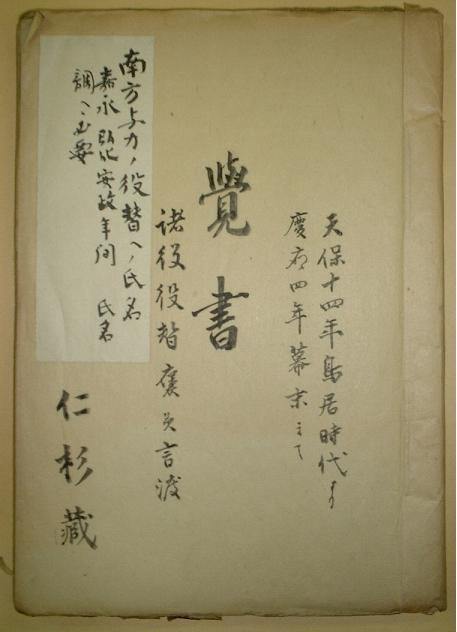 天保十四年鳥居時代ゟ
慶応四年幕末まて
覺書
諸役役替褒美言渡
南方与力ノ役替ヘノ氏名
嘉永 弘化 安政年間 氏名
調ヘ必要
仁杉藏